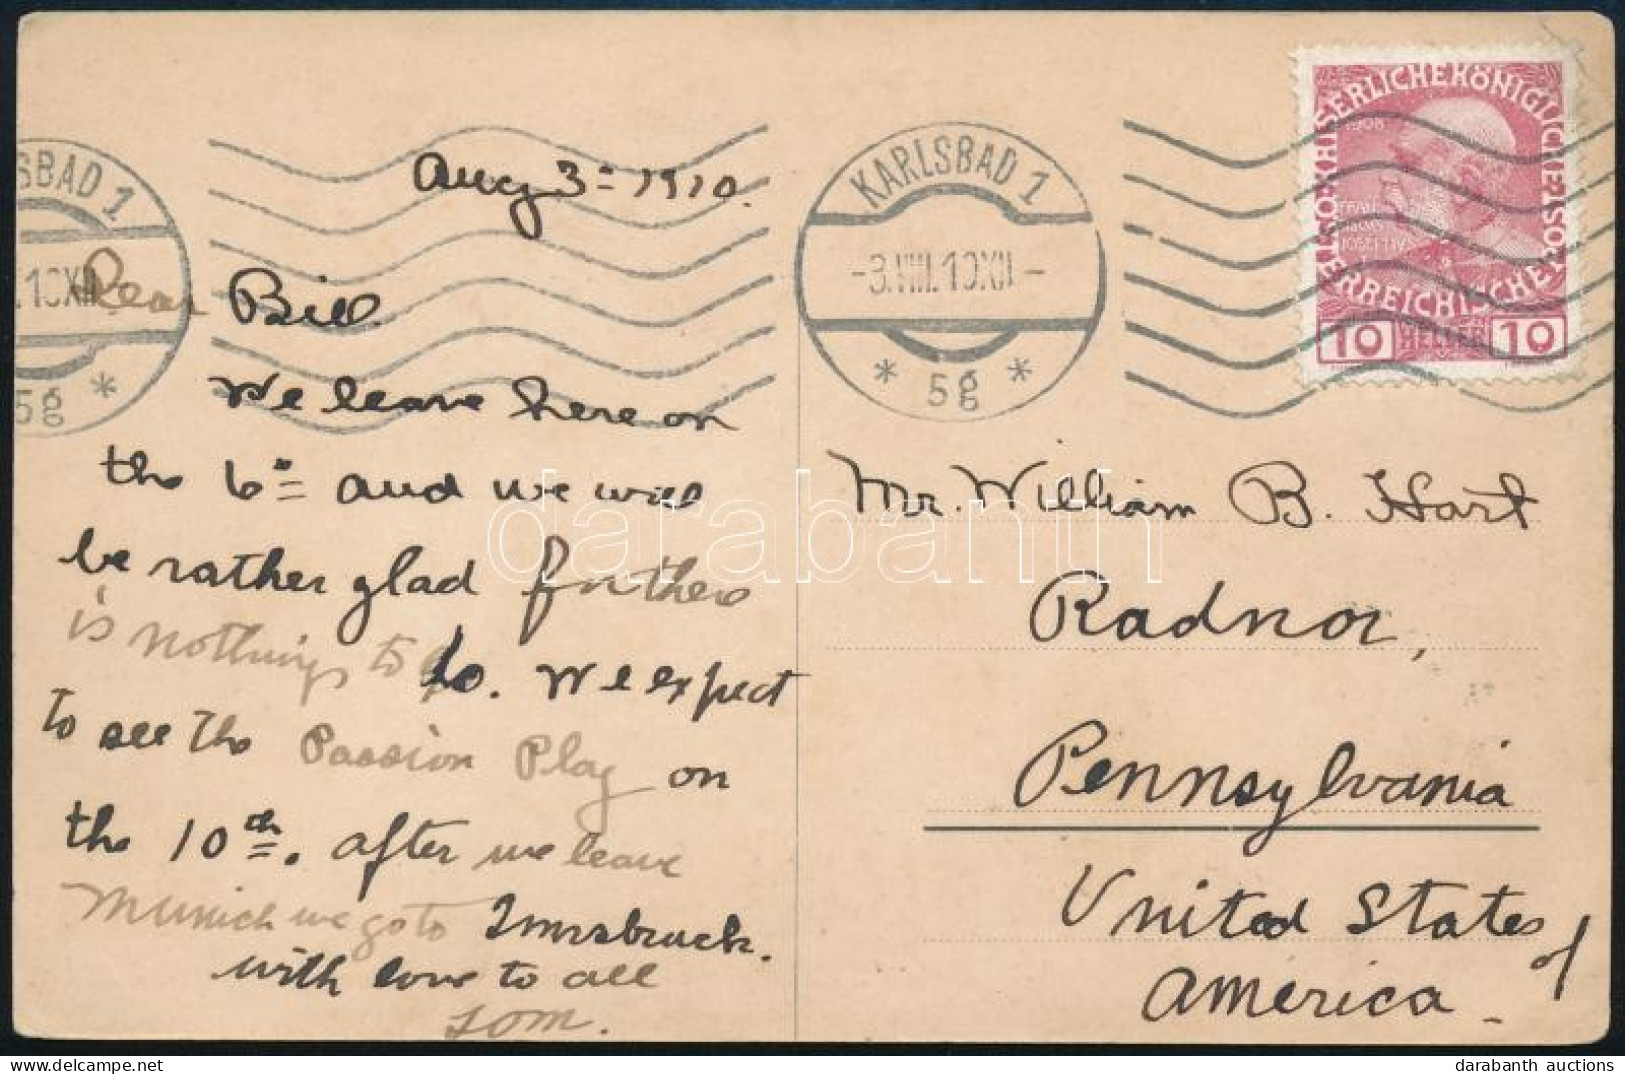 SBAD 1
5g *
KARLSBAD 1
-3.VIII.10XII-
* 5g *
1908
10 HELLER 10
Aug 3 = 1910.
Dear Bill.
We leave here on
the 6th and we will
be rather glad for there
is nothing to do. We expect
to see the Passion Play on
the 10th. after we leave
Munich we go to Innsbruck.
with love to all
Tom.
Mr. William B. Hart
Radnor,
Pennsylvania
United States of
America -
darabanth
darabanth auctions